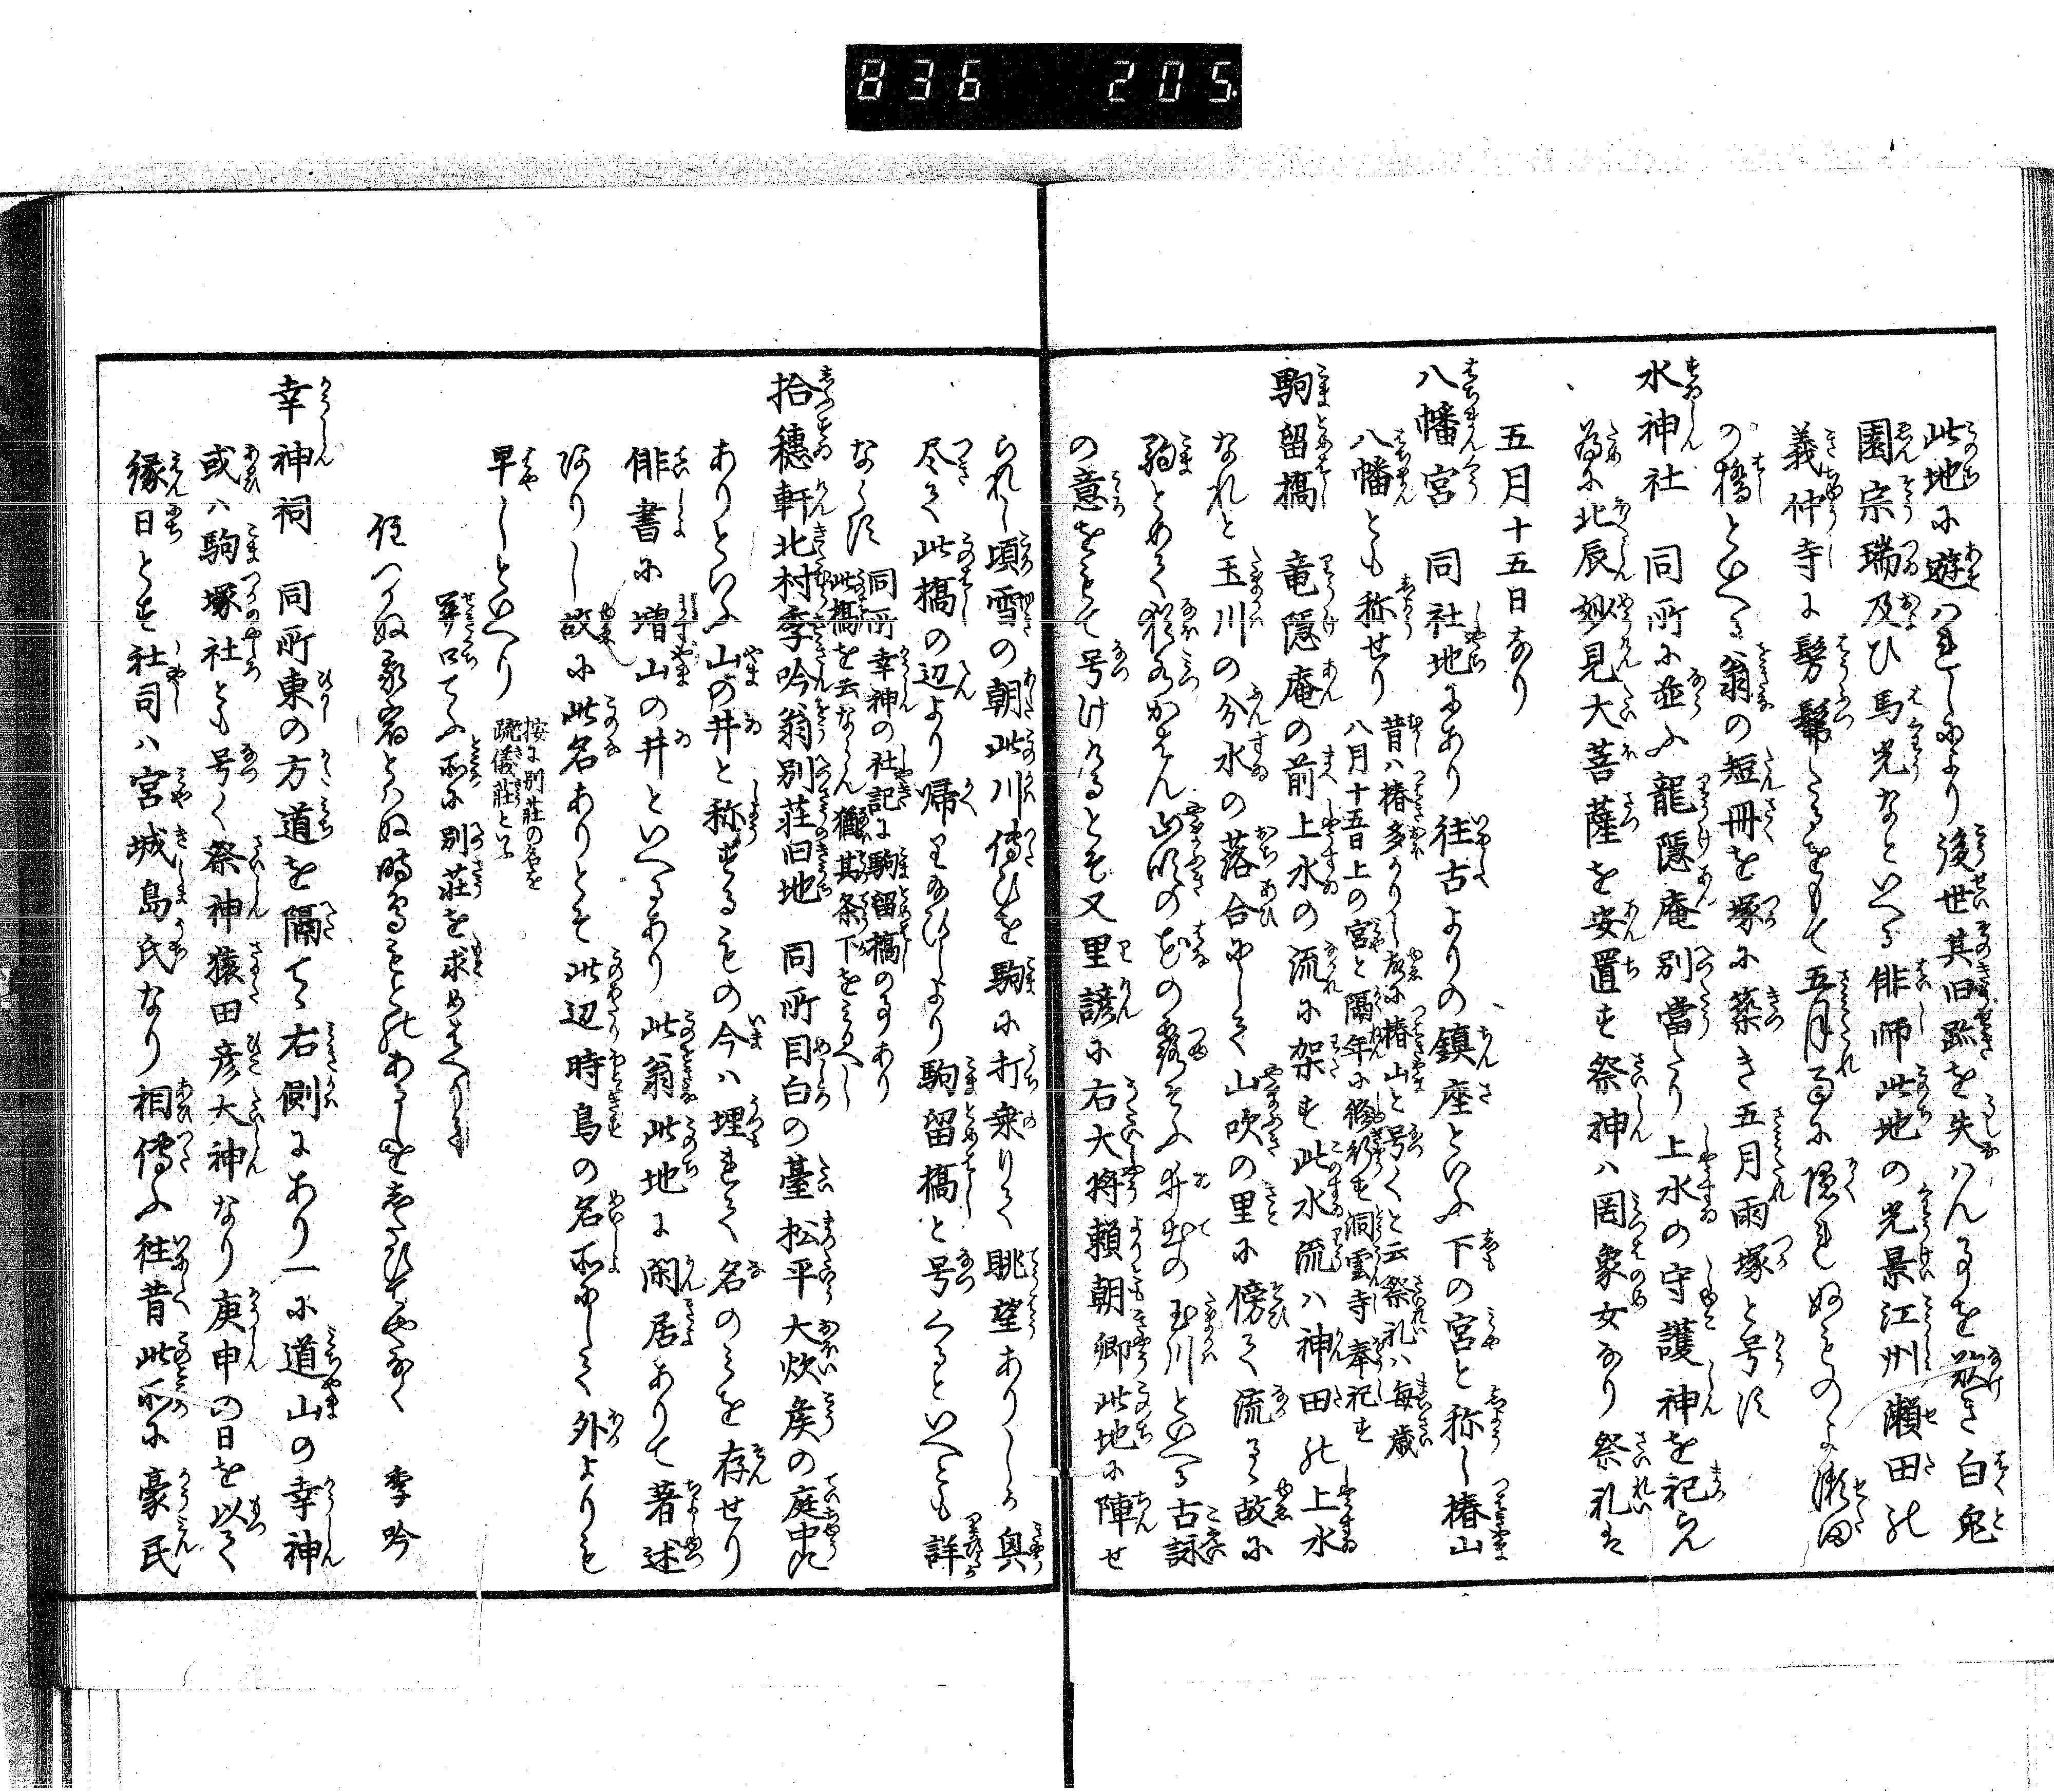 836 205
此地に遊はれしにより後世其旧跡を失はん事を歎き白兎
園宗瑞及ひ馬光なといへる俳師此地の光景江州瀬田の
義仲寺に髣髴たるをもて五月雨に隠れぬものよ瀬田
の橋といへる翁の短冊を塚に築き五月雨塚と号す
水神社 同所に並ふ龍隠庵別當たり上水の守護神を祀らん
為に北辰妙見大菩薩を安置す祭神ハ罔象女なり祭礼は
五月十五日なり
八幡宮 同社地にあり往古よりの鎮座といふ下の宮と称し椿山
八幡とも称せり
昔ハ椿多かりし故に椿山と号くと云祭礼ハ毎歳
八月十五日上の宮と隔年に修行す洞雲寺奉祀す
駒留橋 竜隠庵の前上水の流に架す此水流ハ神田の上水
なれと玉川の分水の落合にして山吹の里に傍て流る故に
駒とめて猶水かはん山吹のはなの露そふ井出の玉川といへる古詠
の意をもて号けけるとそ又里諺に右大将頼朝卿此地に陣せ
られし頃雪の朝此川傳ひを駒に打乗りて眺望ありしに興
尽て此橋の辺より帰り給ひしより駒留橋と号くるといへとも詳
ならす
同所幸神の社記に駒留橋の事あり
此橋を云ならん猶其条下をみるへし
拾穂軒北村季吟翁別荘旧地 同所目白の臺松平大炊矦の庭中に
ありといふ山の井と称するもの今ハ埋れて名のみを存せり
俳書に増山の井といへるあり此翁此地に閑居ありて著述
ありし故に此名ありとそ此辺時鳥の名所にして外よりも
早しといへり
按に別荘の名を
疏儀荘といふ
関口てふ所に別荘を求めはへりて
住つかぬ家宿とはぬ時鳥もとのあるしをしたひてやなく 季吟
幸神祠 同所東の方道を隔てゝ右側にあり一に道山の幸神
或ハ駒塚社とも号く祭神猿田彦大神なり庚申の日を以て
縁日とす社司ハ宮城島氏なり相傳ふ往昔此所に豪民